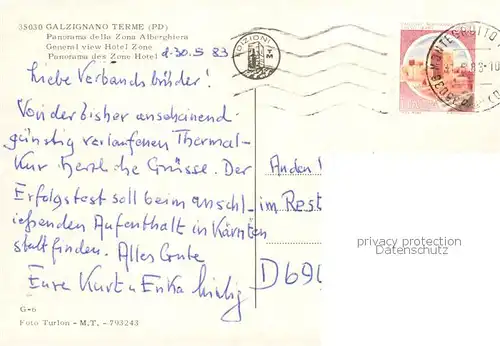 35030 GALZIGNANO TERME (PD)
Panorama dello Zona Alberghiera
General view Hotel Zone
Panorama des Zone Hotel
d. 30. 5 83
EDIZIONI
TM
Liebe Verbandsbrüder!
Von der bisher anscheinend
günstig verlaufenen Thermal-
Kur herzliche Grüsse. Der
Erfolgstest soll beim anschl-
ießenden Aufenthalt in Kärnten
stattfinden. Alles Gute
Eure Kurt u Erika
An den
im Rest
D 690
privacy protection
Datenschutz
G-6
Foto Turlon - M.T. - 793243